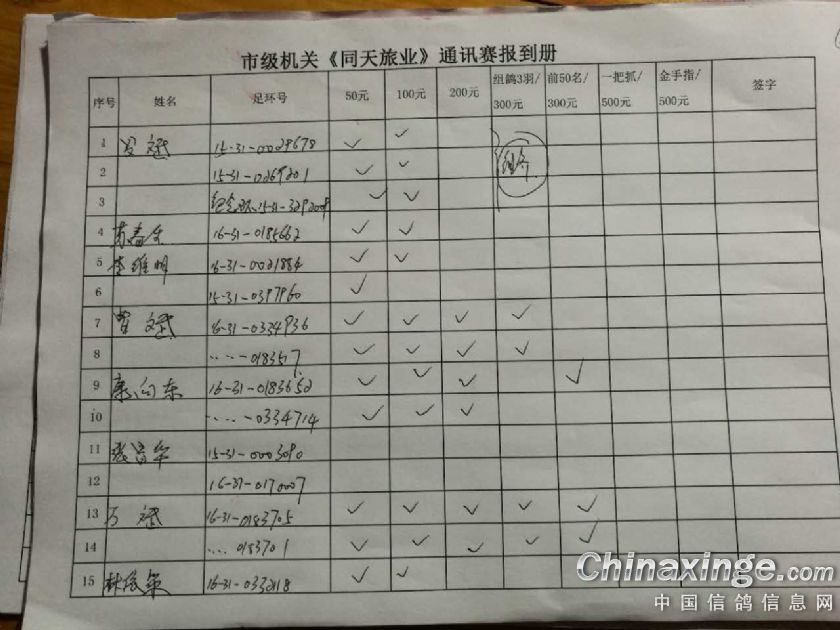 市级机关《同天旅业》通讯赛报到册
序号 姓名 足环号 50元 100元 200元 组鸽3羽/300元 前50名/300元 一把抓/500元 金手指/500元 签字
1 15-31-0029678 ✓ ✓
2 15-31-0269201 ✓ ✓
3 15-31-329200 ✓ ✓
4 16-31-0185662 ✓ ✓
5 李维明 16-31-0021884 ✓ ✓
6 15-31-0397960 ✓
7 曾文斌 16-31-0334936 ✓ ✓ ✓ ✓
8 ....-018351 ✓ ✓ ✓ ✓
9 康向东 16-31-0183652 ✓ ✓ ✓ ✓
10 .....-0334714 ✓ ✓ ✓
11 15-31-0003090
12 16-31-0170007
13 万斌 16-31-0183705 ✓ ✓ ✓ ✓ ✓
14 ....0183701 ✓ ✓ ✓ ✓ ✓
15 16-31-0332118 ✓ ✓
Chinaxinge.com
中国信鸽信息网